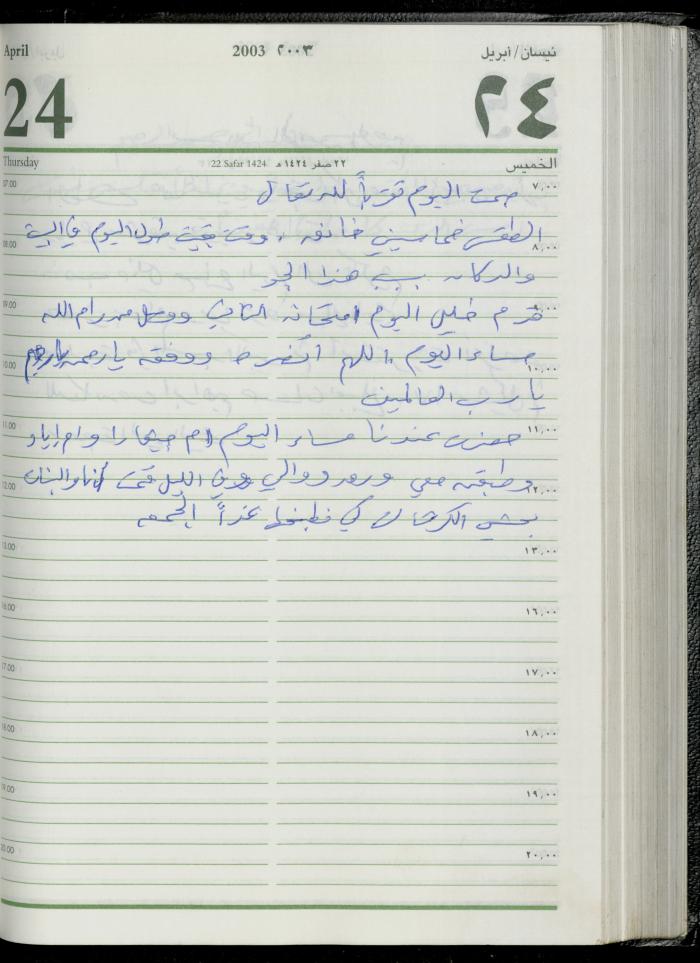 April 2003 ٢٠٠٣ نيسان/أبريل
24 ٢٤
Thursday 22 Safar 1424 ٢٢ صفر ١٤٢٤ هـ الخميس
07.00 ٧,٠٠
صمت اليوم تقرباً لله تعالى
الطقس خماسيني خانق، وقد بقيت طول اليوم في البيت
08.00 ٨,٠٠
والدكان بسبب هذا الجو
09.00
قدم خليل اليوم امتحانه الثاني ووصل من رام الله
مساء اليوم اللهم انصره ووفقه يا رحمن يا رحيم
10.00 ١٠,٠٠
يا رب العالمين
11.00 ١١,٠٠
حضرت عندنا مساء اليوم ام جيفارا وام اياد
وطبقن معي ورق دوالي وفي الليل قمت أنا والبنات
12.00 ١٢,٠٠
بحشي الكرشات كي نطبخها غداً الجمعه
13.00 ١٣,٠٠
16.00 ١٦,٠٠
17.00 ١٧,٠٠
18.00 ١٨,٠٠
19.00 ١٩,٠٠
20.00 ٢٠,٠٠